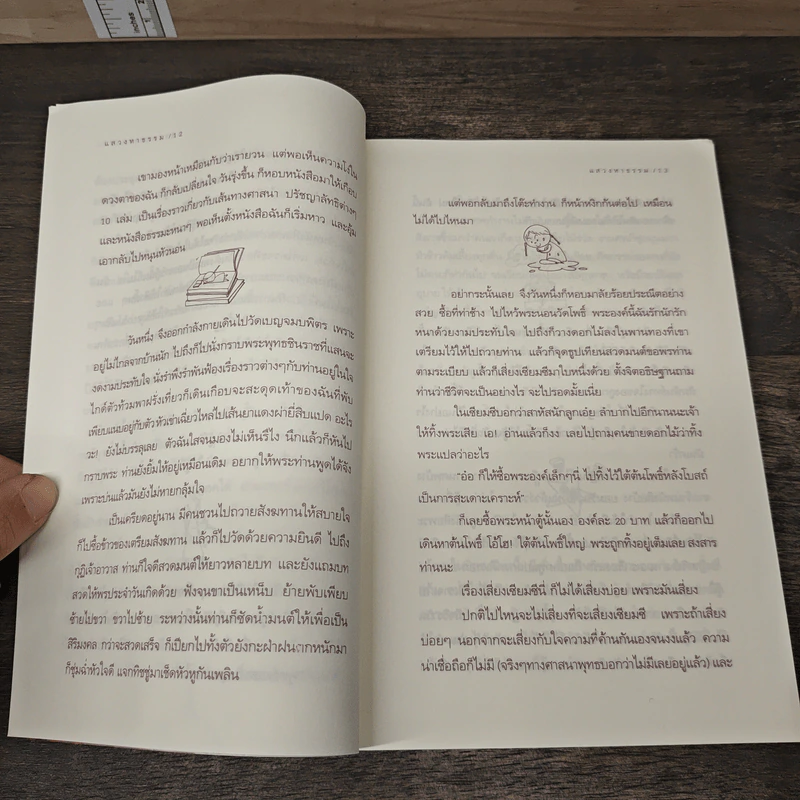 inches
แสวงหาธรรม /12
เขามองหน้าเหมือนกับว่าเรายวน แต่พอเห็นความโง่ใน
ดวงตาของฉัน ก็กลับเปลี่ยนใจ วันรุ่งขึ้น ก็หอบหนังสือมาให้เกือบ
10 เล่ม เป็นเรื่องราวเกี่ยวกับเส้นทางศาสนา ปรัชญาลัทธิต่างๆ
และหนังสือธรรมะหนาๆ พอเห็นตั้งหนังสือฉันก็เริ่มหาว และอุ้ม
เอากลับไปหนุนหัวนอน
วันหนึ่ง จึงออกกำลังกายเดินไปวัดเบญจมบพิตร เพราะ
อยู่ไม่ไกลจากบ้านนัก ไปถึงก็ไปนั่งกราบพระพุทธชินราชที่แสนจะ
งดงามประทับใจ นั่งรำพึงรำพันฟ้องเรื่องราวต่างๆกับท่านอยู่ในใจ
ไกด์ตัวท้วมพาฝรั่งเที่ยวก็เดินเกือบจะสะดุดเท้าของฉันที่พับ
เพียบแนบอยู่กับตัว หัวเข่าเฉี่ยวไหล่ไปเส้นยาแดงผ่ายี่สิบแปด อะไร
วะ! ยังไม่บรรลุเลย ตัวฉันใสจนมองไม่เห็นรึไง นึกแล้วก็หันไป
กราบพระ ท่านยังยิ้มให้อยู่เหมือนเดิม อยากให้พระท่านพูดได้จัง
เพราะบ่นแล้วมันยังไม่หายกลุ้มใจ
เป็นเครียดอยู่นาน มีคนชวนไปถวายสังฆทานให้สบายใจ
ก็ไปซื้อข้าวของเตรียมสังฆทาน แล้วก็ไปวัดด้วยความยินดี ไปถึง
กุฏิเจ้าอาวาส ท่านก็ใจดีสวดมนต์ให้ยาวหลายบท และยังแถมบท
สวดให้พรประจำวันเกิดด้วย ฟังจนขาเป็นเหน็บ ย้ายพับเพียบ
ซ้ายไปขวา ขวาไปซ้าย ระหว่างนั้นท่านก็ซัดน้ำมนต์ให้เพื่อเป็น
สิริมงคล กว่าจะสวดเสร็จ ก็เปียกไปทั้งตัวยังกะฝ่าฝนตกหนักมา
ก็ชุ่มฉ่ำหัวใจดี แจกทิชชู่มาเช็ดหัวหูกันเพลิน
แสวงหาธรรม /13
แต่พอกลับมาถึงโต๊ะทำงาน ก็หน้าหงิกกันต่อไป เหมือน
ไม่ได้ไปไหนมา
อย่ากระนั้นเลย จึงวันหนึ่งก็หอบมาลัยร้อยประณีตอย่าง
สวย ซื้อที่ท่าช้าง ไปไหว้พระนอนวัดโพธิ์ พระองค์นี้ฉันรักนักรัก
หนาด้วยงามประทับใจ ไปถึงก็วางดอกไม้ลงในพานทองที่เขา
เตรียมไว้ให้ไปถวายท่าน แล้วก็จุดธูปเทียนสวดมนต์ขอพรท่าน
ตามระเบียบ แล้วก็เสี่ยงเซียมซีมาใบหนึ่งด้วย ตั้งจิตอธิษฐานถาม
ท่านว่าชีวิตจะเป็นอย่างไร จะไปรอดมั้ยเนี่ย
ในเซียมซีบอกว่าสาหัสนักลูกเอ๋ย ลำบากไปอีกนานนะเจ้า
ให้ทิ้งพระเสีย เอ! อ่านแล้วก็งง เลยไปถามคนขายดอกไม้ว่าทิ้ง
พระแปลว่าอะไร
“อ๋อ ก็ให้ซื้อพระองค์เล็กๆนี่ ไปทิ้งไว้ใต้ต้นโพธิ์หลังโบสถ์
เป็นการสะเดาะเคราะห์”
ก็เลยซื้อพระหน้าตู้นั้นเอง องค์ละ 20 บาท แล้วก็ออกไป
เดินหาต้นโพธิ์ โอ้โฮ! ใต้ต้นโพธิ์ใหญ่ พระถูกทิ้งอยู่เต็มเลย สงสาร
ท่านนะ
เรื่องเสี่ยงเซียมซีนี่ ก็ไม่ได้เสี่ยงบ่อย เพราะมันเสี่ยง
ปกติไปไหนจะไม่เสี่ยงที่จะเสี่ยงเซียมซี เพราะถ้าเสี่ยง
บ่อยๆ นอกจากจะเสี่ยงกับใจความที่ค้านกันเองจนงงแล้ว ความ
น่าเชื่อถือก็ไม่มี (จริงๆทางศาสนาพุทธบอกว่าไม่มีเลยอยู่แล้ว) และ